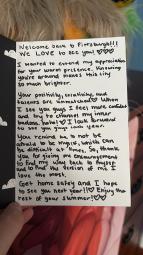 Welcome back to Pittsburgh!!!
We LOVE to see you! ♡♡♡
I wanted to extend my appreciation
for your warm presence. Knowing
you're around makes this city
so much brighter.
Your positivity, creativity, and
talents are unmatched ♡ When
I see you guys I feel more confident
and try to channel my inner
badass, haha! ♡ I look forward
to see you guys each year.
You remind me to not be
afraid to be myself, which can
be difficult at times. So, thank
you for giving me encouragement
to find my way back to myself
and to find the version of me I
love the most.
Get home safely and I hope
to see you next year!! ♡ Enjoy the
rest of your summer! ♡♡